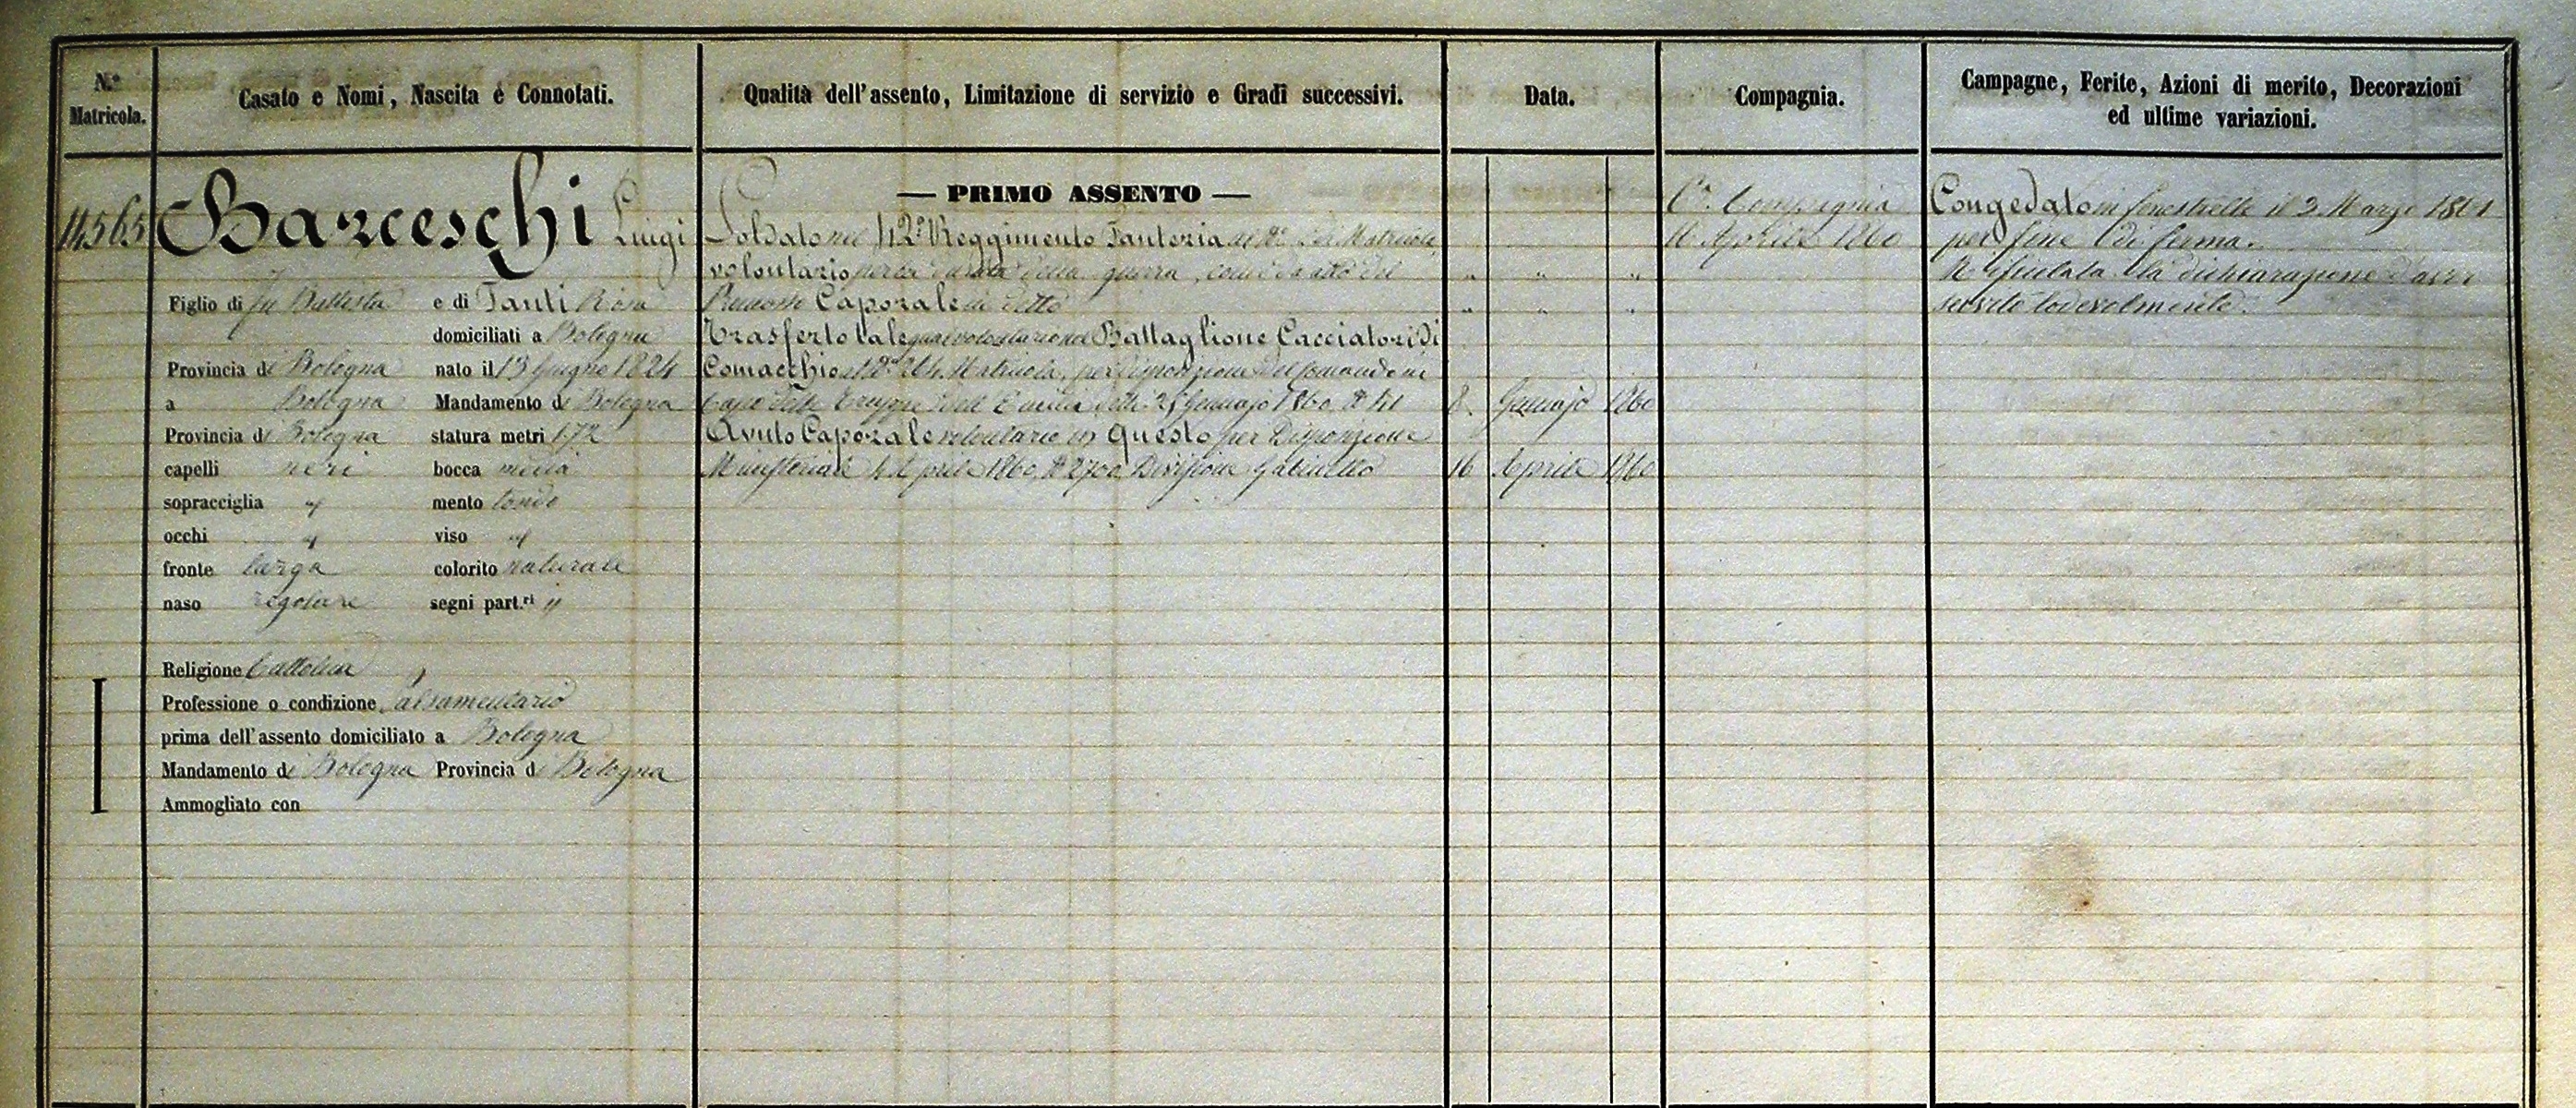 N.° Matricola.
Casato e Nomi, Nascita e Connotati.
Qualità dell'assento, Limitazione di servizio e Gradi successivi.
Data.
Compagnia.
Campagne, Ferite, Azioni di merito, Decorazioni
ed ultime variazioni.
14565
Barceschi Luigi
Figlio di fu Battista e di Fanti Rosa
domiciliati a Bologna
Provincia di Bologna nato il 13 Giugno 1824
a Bologna Mandamento di Bologna
Provincia di Bologna statura metri 1.72
capelli neri bocca media
sopracciglia " mento tondo
occhi " viso "
fronte larga colorito naturale
naso regolare segni part.ri "
Religione Cattolica
Professione o condizione Salsamentario
prima dell'assento domiciliato a Bologna
Mandamento di Bologna Provincia di Bologna
Ammogliato con
— PRIMO ASSENTO —
Soldato nel 42° Reggimento Fanteria al N° di Matricola
volontario per la durata della guerra, come da atto del " " "
Promosso Caporale in detto " " "
Trasferto tale qual volontario nel Battaglione Cacciatori di
Comacchio al N° 264 Matricola, per disposizione del Comando in
Capo delle Truppe dell'Emilia delli 25 Gennajo 1860 N° 41 8 Gennajo 1860
Avuto Caporale volontario in Questo per Disposizione
Ministeriale 4 Aprile 1860 N° 2700 Divisione Gabinetto 16 Aprile 1860
Compagnia
16 Aprile 1860
Congedato in Fenestrelle il 2 Marzo 1861
per fine di ferma.
Rifiutata la dichiarazione d'aver
servito lodevolmente.